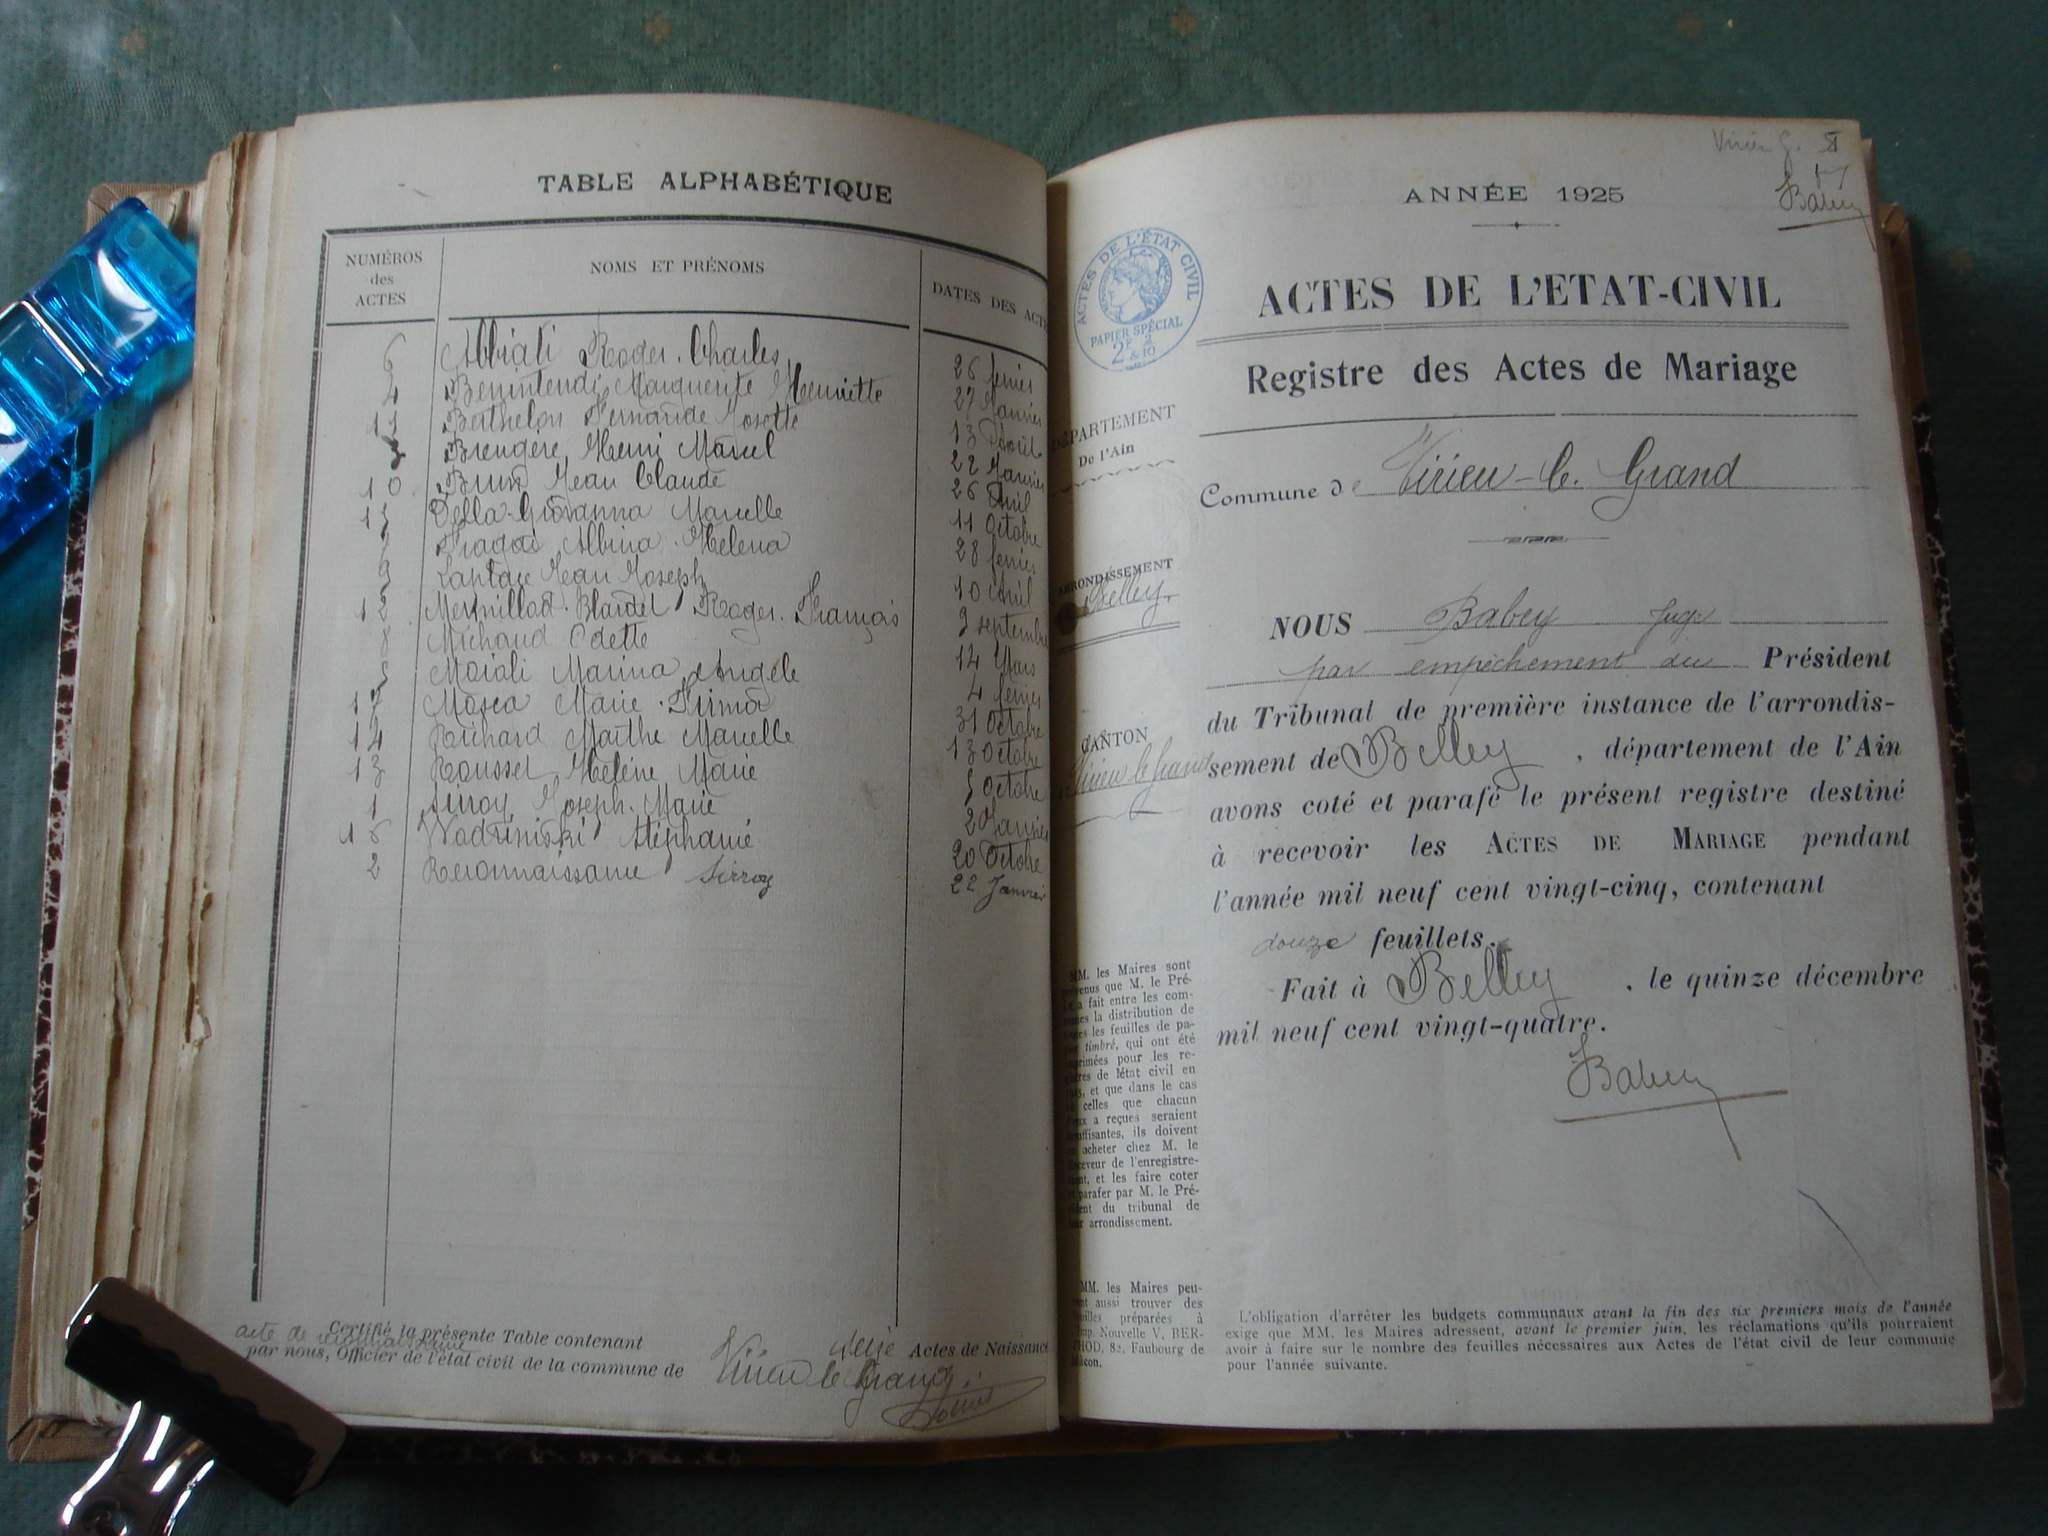 TABLE ALPHABÉTIQUE
NUMÉROS des ACTES
NOMS ET PRÉNOMS
DATES DES ACTE
6 Albiati Roger Charles 26 fevrier
4 Benintendi Marguerite Henriette 27 Janvier
11 Berthelon Fernande Josette 13 Août
Breugère Henri Marcel 22 Janvier
10 Brun Jean Claude 26 Avril
Della-Giovanna Marcelle 11 Octobre
Albina Helena 28 fevrier
Jean Joseph 10 Avril
12 Roger François 9 septembre
8 Michaud Odette 14 Mars
Moiali Marina Angèle 4 fevrier
17 Mosca Marie 31 Octobre
14 Richard Marthe Marcelle 13 Octobre
13 Rousset Hélène Marie 5 Octobre
1 Sirroy Joseph Marie 2 Janvier
16 Stéphanie 20 Octobre
2 Reconnaissance Sirroy 22 Janvier
Certifié la présente Table contenant seize Actes de Naissance
acte de reconnaissance
par nous, Officier de l'état civil de la commune de Virieu le Grand
Virieu G.
Babey
ANNÉE 1925
ACTES DE L'ÉTAT CIVIL
PAPIER SPÉCIAL
ACTES DE L'ETAT-CIVIL
Registre des Actes de Mariage
DÉPARTEMENT
De l'Ain
Commune de Virieu-le-Grand
ARRONDISSEMENT
Belley
NOUS Babey Juge
par empêchement du Président
du Tribunal de première instance de l'arrondis-
CANTON
Virieu le grand
sement de Belley, département de l'Ain
avons coté et parafé le présent registre destiné
à recevoir les ACTES DE MARIAGE pendant
l'année mil neuf cent vingt-cinq, contenant
douze feuillets.
Fait à Belley, le quinze décembre
mil neuf cent vingt-quatre.
Babey
MM. les Maires sont
que M. le Pré-
a fait entre les com-
la distribution de
les feuilles de pa-
timbré, qui ont été
pour les re-
de l'état civil en
et que dans le cas
celles que chacun
a reçues seraient
ils doivent
acheter chez M. le
de l'enregistre-
et les faire coter
parafer par M. le Pré-
du tribunal de
arrondissement.
MM. les Maires peu-
aussi trouver des
préparées à
Nouvelle V. BER-
82, Faubourg de
L'obligation d'arrêter les budgets communaux avant la fin des six premiers mois de l'année
exige que MM. les Maires adressent, avant le premier juin, les réclamations qu'ils pourraient
avoir à faire sur le nombre des feuilles nécessaires aux Actes de l'état civil de leur commune
pour l'année suivante.